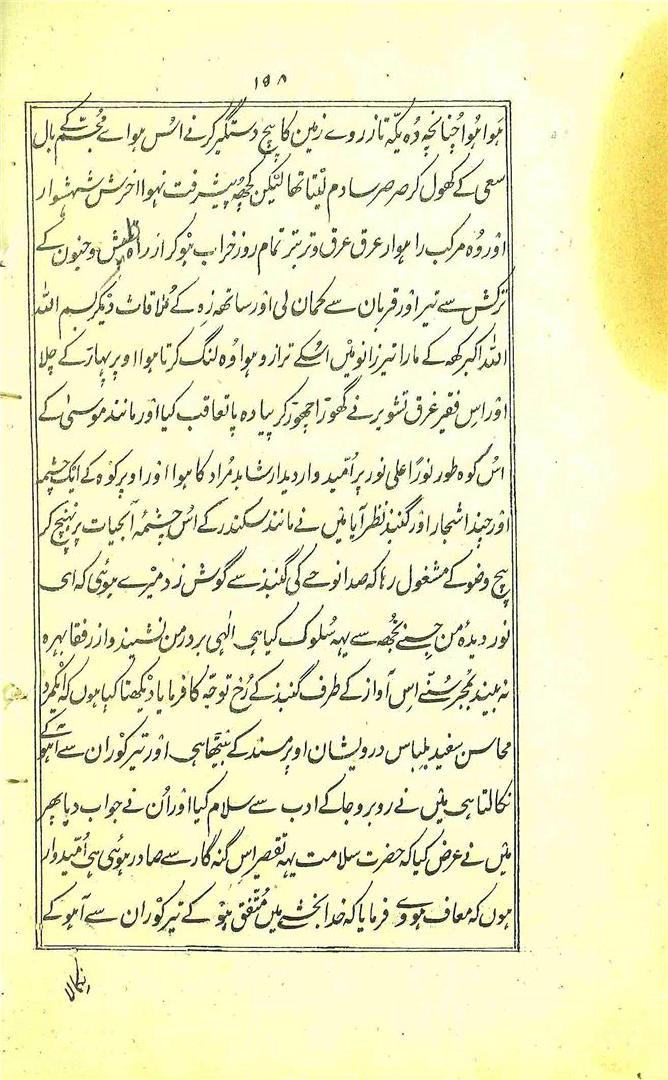 ١٥٨
ہوا ہوا چنانچہ دہ یکہ تاز روے زمین کا بیچ دستگیر کرنے اُس ہواے مجسم کے بال
سعی کے کھول کر صرصر سا دم لیتا تھا لیکن کچھ پیشرفت نہوا آخرش شہشوار
اور وُہ مرکب راہوار عرق عرق و تربتر تمام روز خراب ہو کر از راہ طیش و جنون کے
ترکش سے تیر اور قربان سے کمان لی اور ساتھ زہ کے مُلاقات دیکر بسم اللہ
اللہ اکبر کہہ کے مارا تیر زانو میں اُسکے ترازو ہوا وُہ لنگ کرتا ہوا اوپر پہاڑ کے چلا
اور اِس فقیر غرق تشویر نے گھوڑا چھوڑ کر پیادہ پا تعاقب کیا اور مانند موسیٰ کے
اُس کوہ طور نورًا علی نور پر اُمیدوار دیدار شاہد مُراد کا ہوا اور اوپر کوہ کے ایک چشمہ
اور چند اشجار اور گنبذ نظر آیا میں نے مانند سکندر کے اُس چشمۂ آبحیات پر پہنچ کر
بیچ وضو کے مشغول رہا کہ صدا نوحے کی گنبذ سے گوش زد میرے ہوئی کہ ای
نور دیدۂ من جسنے تجھ سے یہہ سُلوک کیا ہی الٰہی بر در من نشیند و از رفقا بہرہ
نہ بیند بمجرد سُننے اِس آواز کے طرف گنبذ کے رُخ توجہ کا فرمایا دیکھتا کیا ہوں کہ ایکمرد
محاسن سفید بلباس درویشان اوپر مسند کے بیٹھا ہی اور تیر کو ران سے آہو کے
نکالتا ہی میں نے روبرو جا کے ادب سے سلام کیا اور اُن نے جواب دیا پھر
میں نے عرض کیا کہ حضرت سلامت یہہ تقصیر اِس گنہ گار سے صادر ہوئی ہی اُمیدوار
ہوں کہ معاف ہووے فرمایا کہ خدا بخشے میں مُتفق ہو کے تیر کو ران سے آہو کے
نکالا